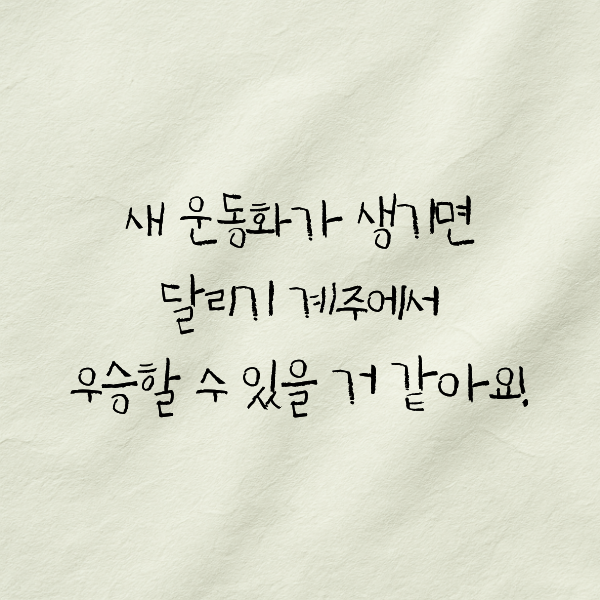 새 운동화가 생기면
달리기 계주에서
우승할 수 있을 거 같아요!